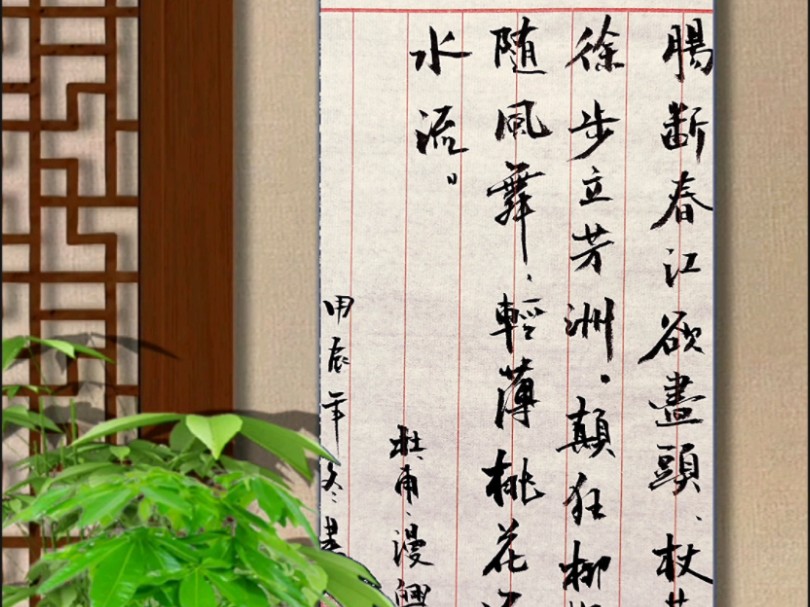 腸斷春江欲盡頭、杖
徐步立芳洲。顛狂柳
随風舞、輕薄桃花
水流。
杜甫、漫興
甲辰年冬